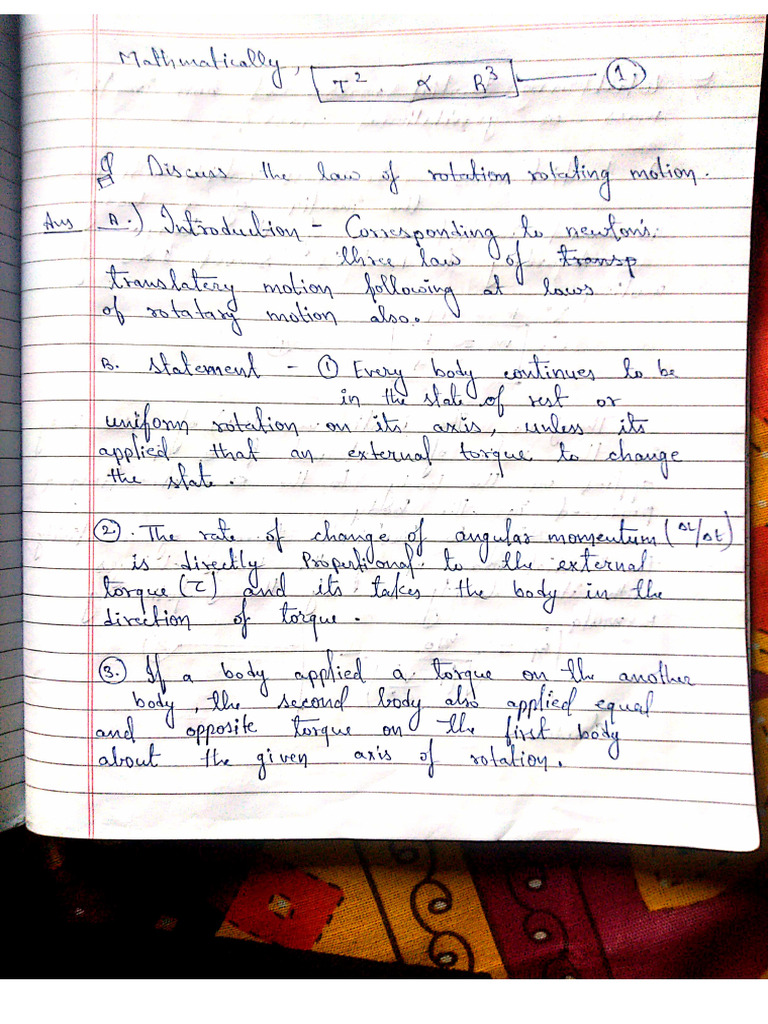 Mathmatically, T² ∝ R³ 1.
Q Discuss the law of rotation rotating motion.
Ans A.) Introduction - Corresponding to newton's
three law of transp
translatery motion following at laws
of rotatary motion also.
B. Statement - ① Every body continues to be
in the state of rest or
uniform rotation on its axis, unless its
applied that an external torque to change
the state.
②. The rate of change of angular momentum (ΔL/Δt)
is directly Proportional to the external
torque (τ) and its takes the body in the
direction of torque.
③. If a body applied a torque on the another
body, the second body also applied equal
and opposite torque on the first body
about the given axis of rotation.